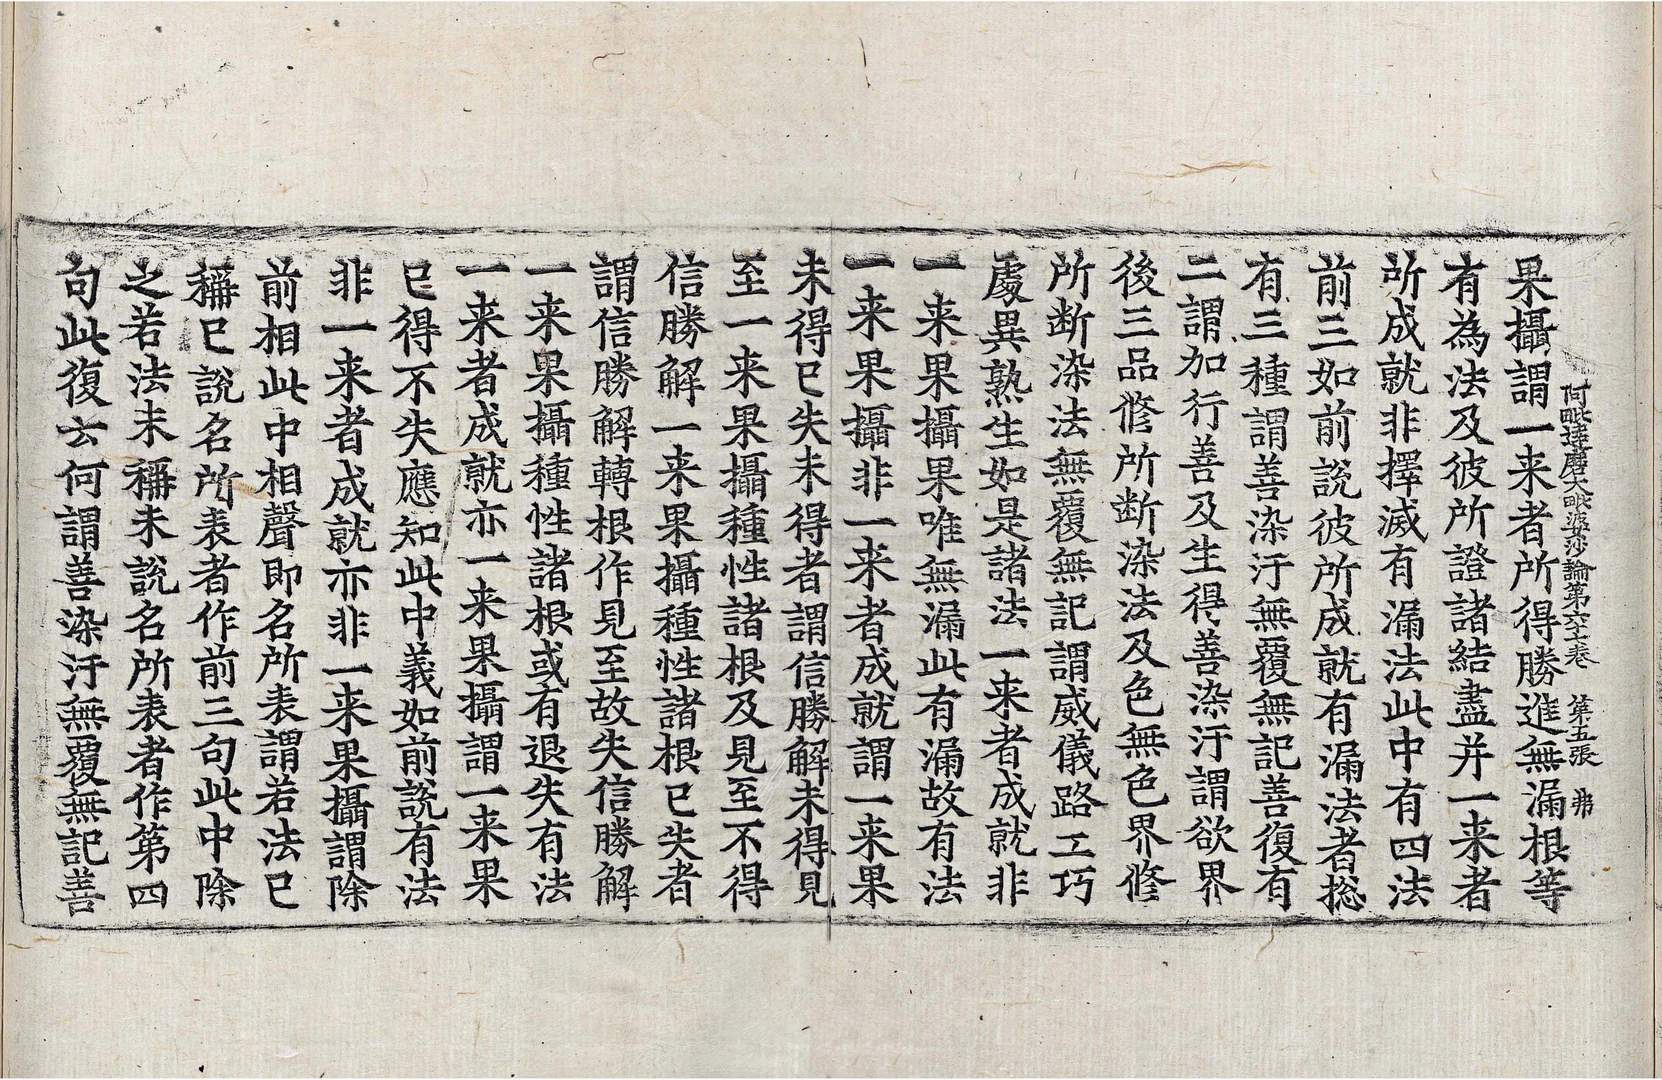 阿毗達磨大毗婆沙論第六十五卷　第五張　弗
果攝謂一来者所得勝進無漏根等
有為法及彼所證諸結盡并一来者
所成就非擇滅有漏法此中有四法
前三如前說彼所成就有漏法者捴
有三種謂善染汙無覆無記善復有
二謂加行善及生得善染汙謂欲界
後三品修所断染法及色無色界修
所断染法無覆無記謂威儀路工巧
處異熟生如是諸法一来者成就非
一来果攝果唯無漏此有漏故有法
一来果攝非一来者成就謂一来果
未得已失未得者謂信勝解未得見
至一来果攝種性諸根及見至不得
信勝解一来果攝種性諸根已失者
謂信勝解轉根作見至故失信勝解
一来果攝種性諸根或有退失有法
一来者成就亦一来果攝謂一来果
已得不失應知此中義如前說有法
非一来者成就亦非一来果攝謂除
前相此中相聲即名所表謂若法已
稱已說名所表者作前三句此中除
之若法未稱未說名所表者作第四
句此復云何謂善染汙無覆無記善